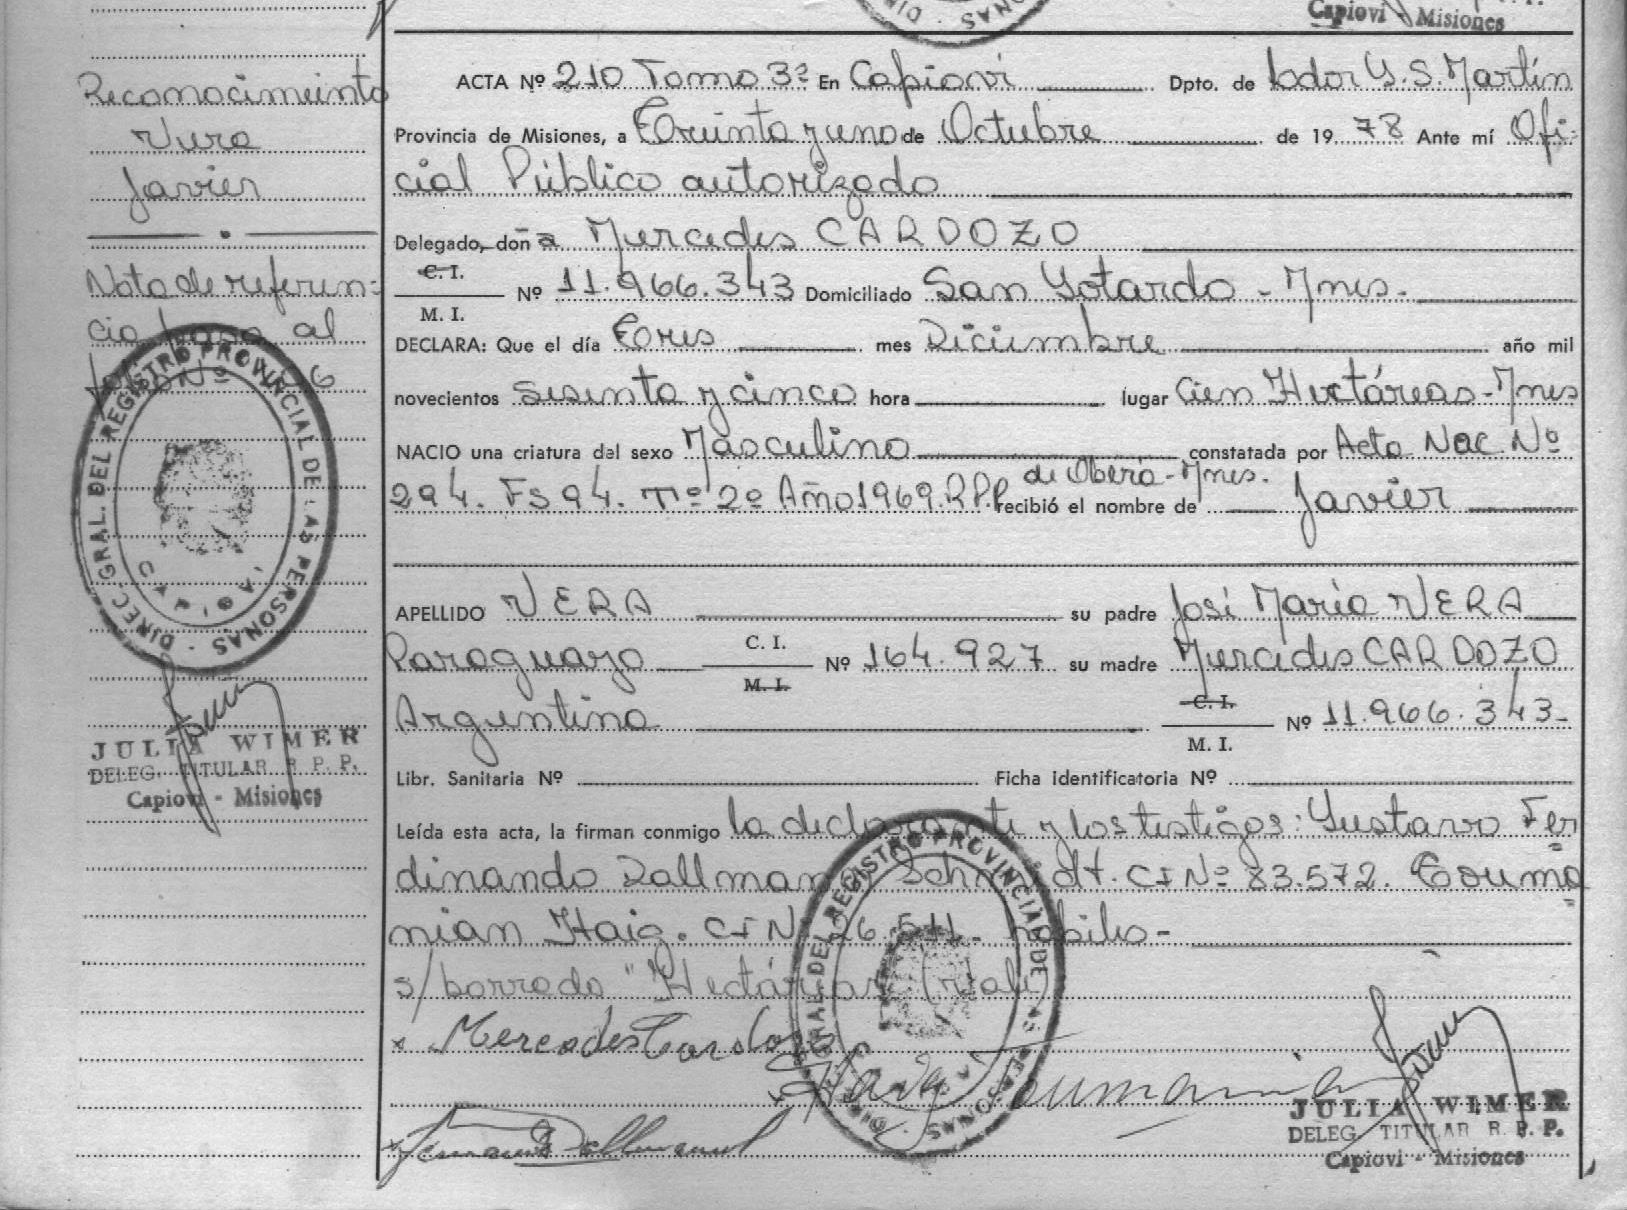 Capiovi - Misiones
Reconocimiento
Vera
Javier
Nota de referen=
cia al
ACTA Nº 210 Tomo 3º En Capioví Dpto. de Ldor G.S. Martín
Provincia de Misiones, a Treinta y uno de Octubre de 1978 Ante mí Ofi-
cial Público autorizado
Delegado, don a Mercedes CARDOZO
C. I.
M. I. Nº 11.966.343 Domiciliado San Gotardo - Mnes.
DECLARA: Que el día Tres mes Diciembre año mil
novecientos sesenta y cinco hora lugar Cien Hectáreas - Mnes
NACIO una criatura del sexo Masculino constatada por Acta Nac. Nº
294. Fs 94. Tº 2º Año 1969. R.P.P. de Oberá - Mnes. recibió el nombre de Javier
APELLIDO VERA su padre José María VERA
Paraguayo C. I. M. I. Nº 164.927 su madre Mercedes CARDOZO
Argentina C. I. M. I. Nº 11.966.343-
Libr. Sanitaria Nº Ficha identificatoria Nº
Leída esta acta, la firman conmigo la declarante y los testigos: Gustavo Fer
dinando Dallmann Schmidt. CI Nº 83.572. Touma
nian Haig. CI Nº 26.511. habiles-
s/borrado "Hectáreas" (vale)
x Mercedes Cardozo
x Haig Toumanian
x Fernando Dallmann
DIREC. GRAL. DEL REGISTRO PROVINCIAL DE LAS PERSONAS
CAPIOVI
JULIA WIMER
DELEG. TITULAR R. P. P.
Capiovi - Misiones
DIREC. GRAL. DEL REGISTRO PROVINCIAL DE LAS PERSONAS
JULIA WIMER
DELEG. TITULAR R. P. P.
Capiovi - Misiones